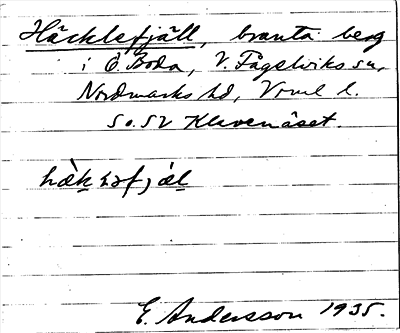 Häcklefjäll, branta berg
i Ö. Boda, V. Fågelviks sn,
Nordmarks hd, Vrml l.
S o. SV Klevenäset.
E. Andersson 1935.